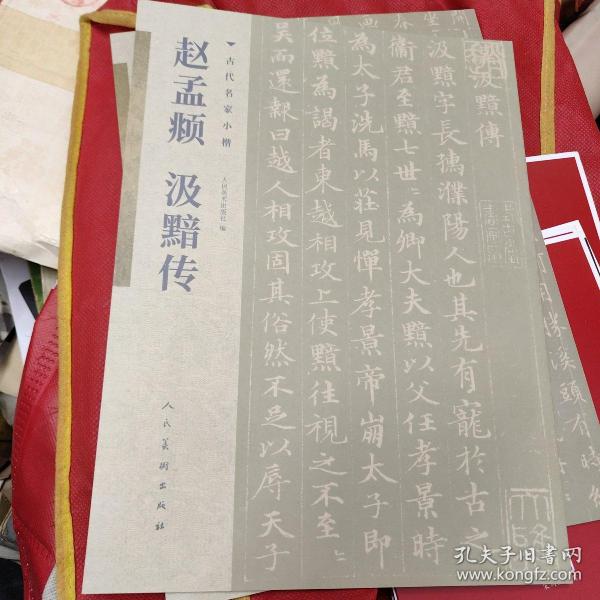 古代名家小楷
赵孟頫 汲黯传
人民美术出版社 编
人民美術出版社
汲黯傳
汲黯字長孺濮陽人也其先有寵於古之
衛君至黯七世〻為卿大夫黯以父任孝景時
為太子洗馬以莊見憚孝景帝崩太子即
位黯為謁者東越相攻上使黯往視之不至〻
吳而還報曰越人相攻固其俗然不足以辱天子
勝溪頭有時
孔夫子旧书网
www.kongfz.com